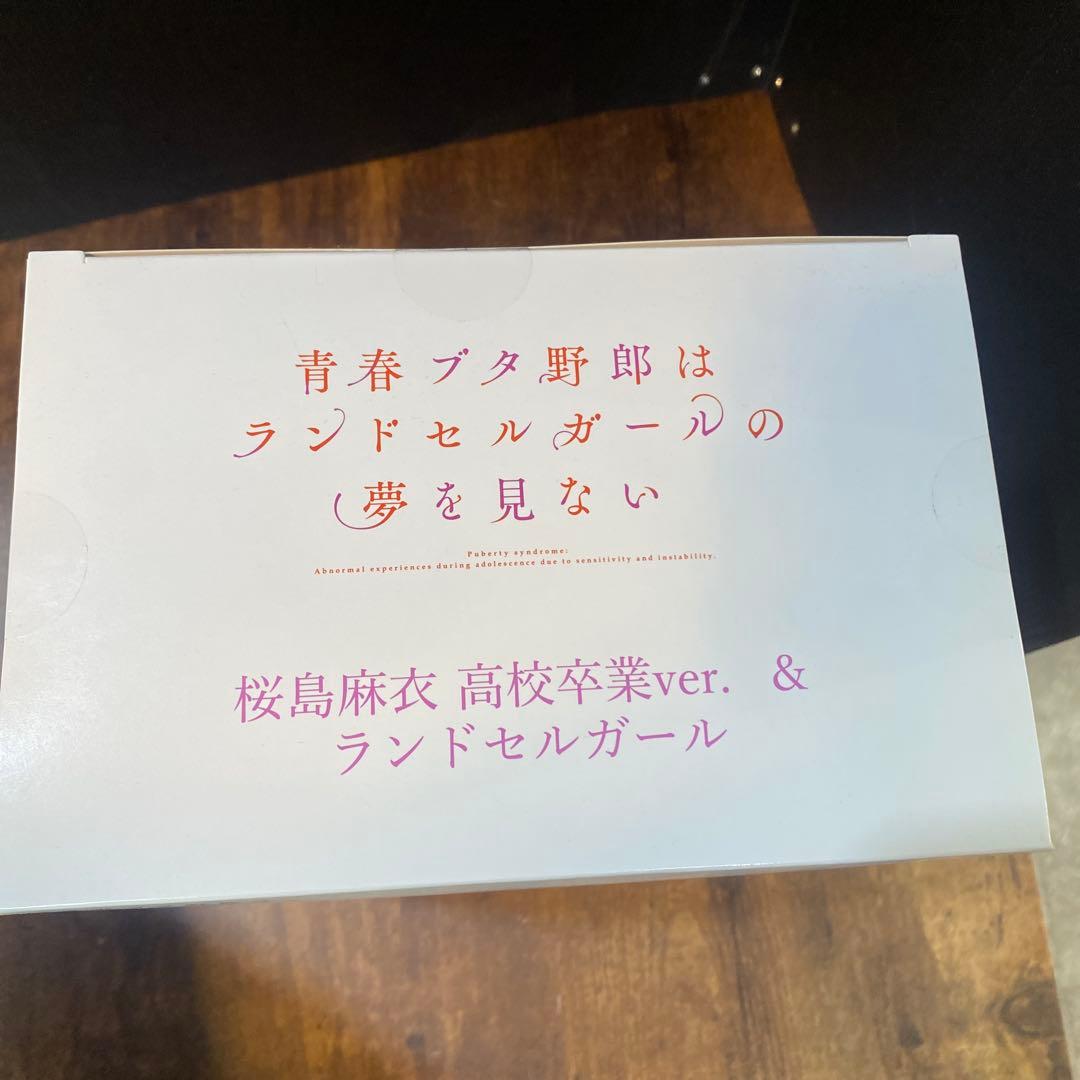 青春ブタ野郎は
ランドセルガールの
夢を見ない
Puberty syndrome:
Abnormal experiences during adolescence due to sensitivity and instability.
桜島麻衣 高校卒業ver. &
ランドセルガール